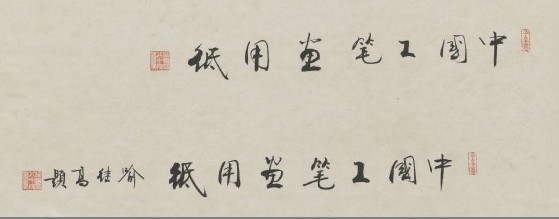 中國工笔画用纸
中國工笔画用纸 喻继高题